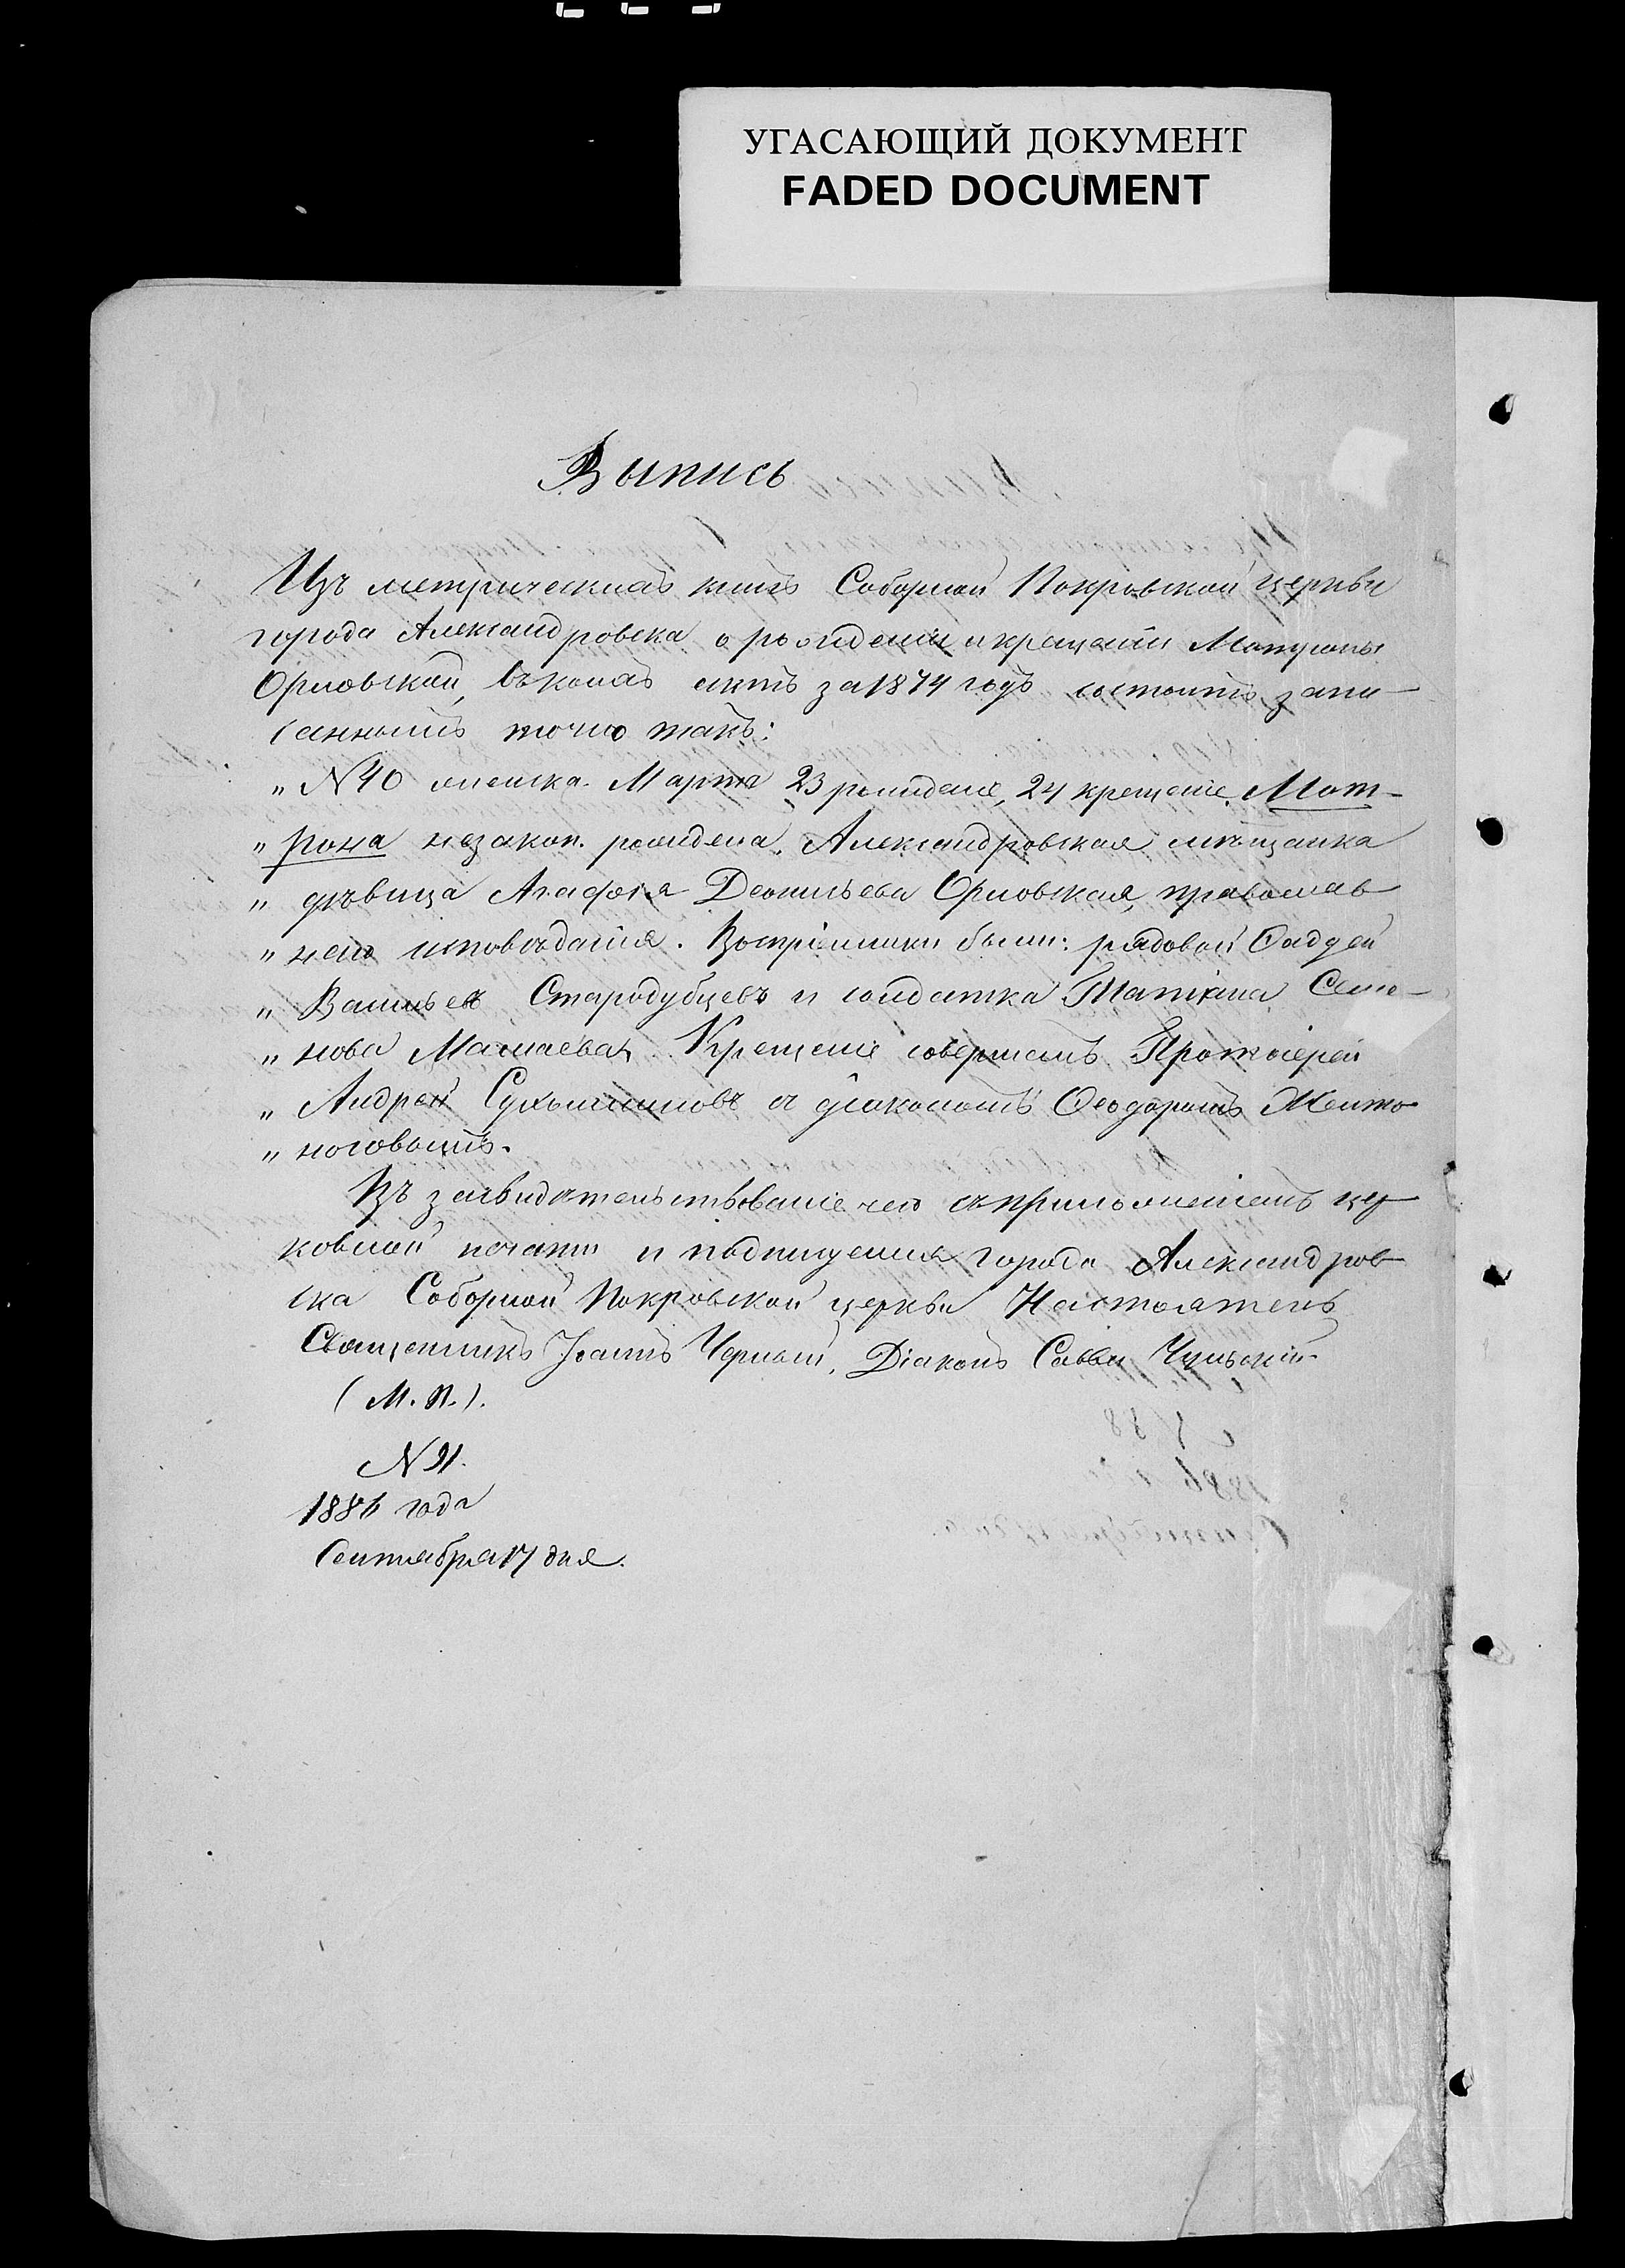 УГАСАЮЩИЙ ДОКУМЕНТ
FADED DOCUMENT
Выпись
Изъ метрическихъ книгъ Соборной Покровской церкви
города Александровска о рожденіи и крещеніи Матроны
Орловской, въ коихъ актъ за 1874 годъ состоитъ запи-
саннымъ точно такъ:
„ N 40 женска. Марта 23 рожденіе, 24 крещеніе. Мат-
„ рона незакон. рождена. Александровская мѣщанка
„ дѣвица Агафія Леонтьева Орловская, православ-
„ наго исповѣданія. Воспріемники были: рядовой Фадей
„ Васильевъ Стародубцевъ и солдатка Татіана Семе-
„ нова Мамаева. Крещеніе совершалъ Протоіерей
„ Андрей с діакономъ Ѳеодоромъ Желто-
„ноговымъ.
Въ засвидѣтельствованіе чего съ приложеніемъ цер-
ковной печати и подписуемся города Александров-
ска Соборной Покровской церкви Настоятель
Священникъ Іоаннъ Черный, Діаконъ Савва
(М. П.).
N 91.
1886 года
Сентября 17 дня.